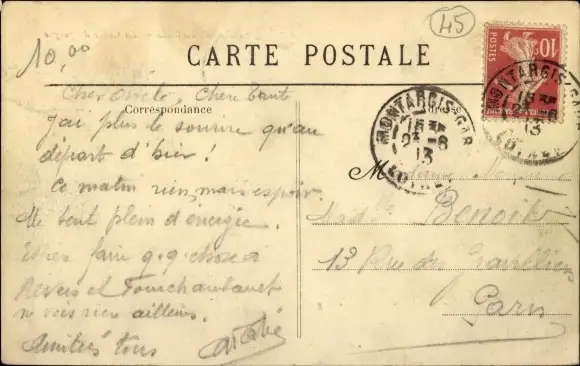 45
10,00
CARTE POSTALE
POSTES
10c
MONTARGIS-GARE
13
LOIRET
Correspondance
Cher Oncle, Chère Tante
J'ai plus le sourire qu'au
départ d'hier!
Ce matin rien, mais espoir.
Me sent plein d'énergie.
faire q.q chose à
Nevers et Fourchambault
vois rien ailleurs.
Amitiés tous
Madame
Benoit
13 Rue des Gravilliers
Paris